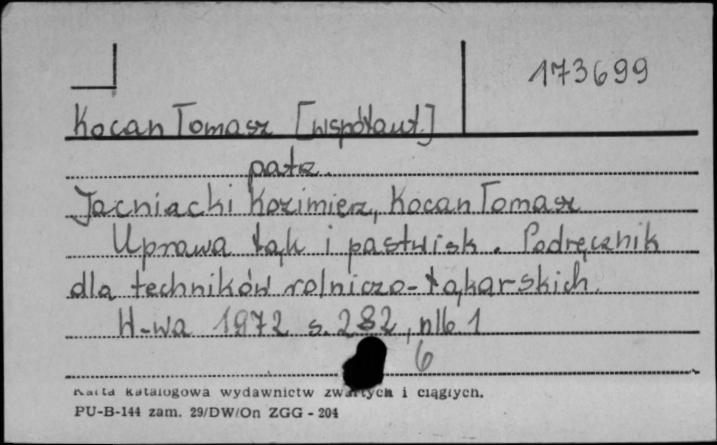 173699
Kocan Tomasz [współaut.]
patrz.
Jacniacki Kazimierz, Kocan Tomasz
Uprawa łąk i pastwisk. Podręcznik
dla techników rolniczo-łąkarskich.
W-wa 1972 s. 282, nlb 1
6
Karta katalogowa wydawnictw zwartych i ciągłych.
PU-B-144 zam. 29/DW/On ZGG - 204